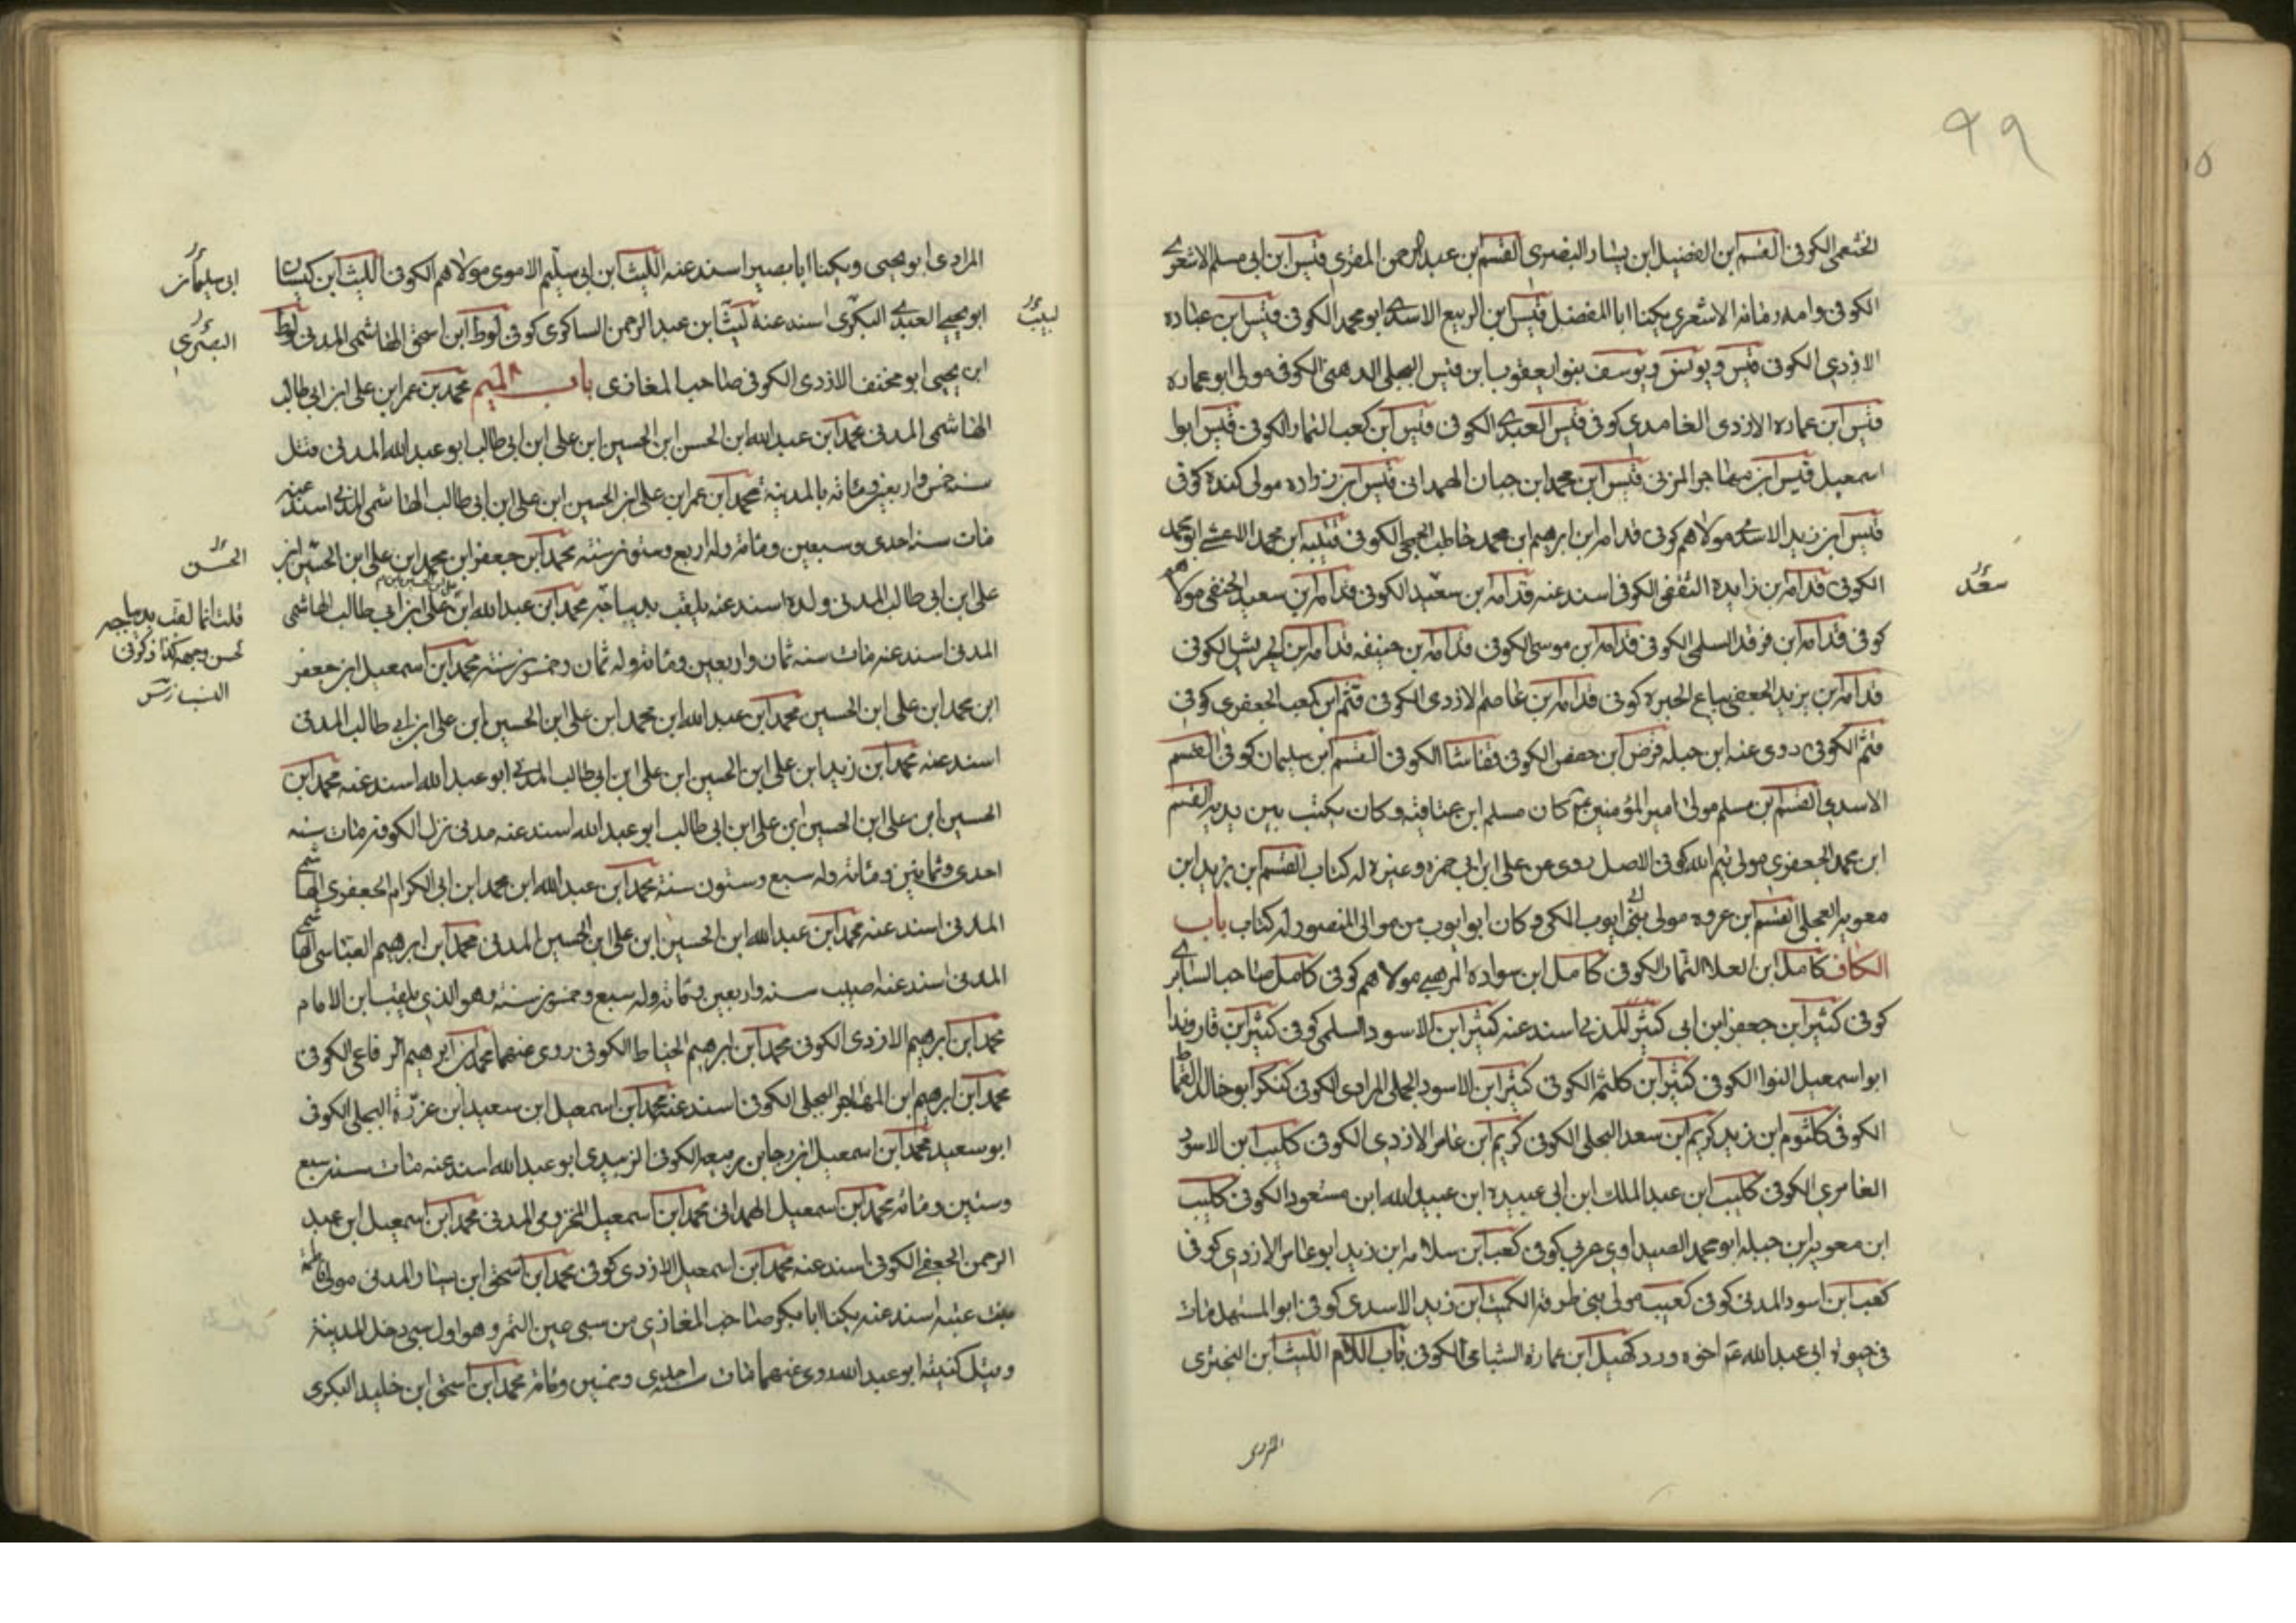 ٩٩
الخثعمى الكوفى القسم ابن الفضيل ابن يسار البصرى القسم بن عبد الرحمن المقرى قيس ابن ابى مسلم الاشعرى
الكوفى وامه رمانه الاشعرى يكينا ابا المفضل قيس ابن الربيع الاسدى ابو محمد الكوفى قيس ابن عباده
الازدى الكوفى قيس ويونس ويوسف بنو ايعقوب ابن قيس البجلى الدهنى الكوفى مولى ابو عماره
قيس ابن عماره الازدى الغامدى كوفى قيس العبدى الكوفى قيس ابن كعب التمار الكوفى قيس ابوا
اسمعيل قيس ابن مهاجر المزنى قيس ابن محمد ابن حبان الهمدانى قيس ابن زواده مولى كندة كوفى
قيس ابن زيد الاسدى مولاهم كوفى قدامه ابن ابرهيم ابن محمد خاطب الجمحى الكوفى قتيبه ابن محمد الاعشى ابو محمد
الكوفى قدامه بن زايدة الثقفى الكوفى اسند عنه قدامه بن سعيد الكوفى قدامه بن سعيد الحنفى مولاهم
سعد
كوفى قدامه ابن فرقد السلمى الكوفى قدامه ابن موسى الكوفى قدامه بن حنيفه قدامه ابن الحريش الكوفى
قدامه بن يزيد الجعفى بياع الحبره كوفى قدامه بن عاصم الازدى الكوفى قثم ابن كعب الجعفرى كوفى
قثم الكوفى روى عنه ابن جبله قرض ابن حفص الكوفى الكوفى القسم ابن سليمان كوفى القسم
الاسدى القسم بن مسلم مولى امير المؤمنين ع كان مسلم ابن عتاقته وكان يكتب بين يديه القسم
ابن محمد الجعفرى مولى تيم الله كوفى الاصل روى عن على ابن ابى حمزه وغيره له كتاب القسم ابن يزيد ابن
معويه العجلى القسم ابن عروه مولى ابى ايوب المكى وكان ابو ايوب من موالى المنصور له كتاب باب
الكاف كامل ابن العلا التمار الكوفى كامل ابن سواده مولاهم كوفى كامل صاحب السابرى
كوفى كثير ابن جعفر ابن ابى كثير المدنى اسند عنه كثير ابن الاسود السلمى كوفى كثير ابن قاروندا
ابو اسمعيل النوا الكوفى كثير ابن كلثم الكوفى كثير ابن الاسود الجملى المرادى الكوفى كنكر ابو خالد القماط
الكوفى كلثوم ابن زيد كريم ابن سعد البجلى الكوفى كريم ابن عامر الازدى الكوفى كليب ابن الاسود
العامرى الكوفى كليب ابن عبد الملك ابن ابى عبيدة ابن عبيد الله ابن مسعود الكوفى كليب
ابن معويه ابن جبله ابو محمد الصيداوى عربى كوفى كعب ابن سلامه ابن زيد ابو عامر الازدى كوفى
كعب ابن اسود المدنى كوفى كعيب مولى بنى طرفه الكميت ابن زيد الاسدى كوفى ابو المستهل مات
فى حيوة ابى عبد الله ع اخوه ورد كهيل ابن عمارة الشباعى الكوفى باب اللام الليث ابن البخترى
المرادى
المرادى ابو يحيى ويكينا ابا بصير اسند عنه الليث ابن ابى سليم الاموى مولاهم الكوفى الليث ابن كيسان
ابى سليمان
ابو يحيى العبدى البكرى اسند عنه ليث ابن عبد الرحمن الساكوى كوفى لوط ابن اسحق الهاشمى المدنى لوط
لبيب
البصرى
ابن يحيى ابو مخنف الازدى الكوفى صاحب المغازى باب الميم محمد بن عمر ابن على ابن ابى طالب
الهاشمى المدنى محمد ابن عبد الله ابن الحسن ابن الحسين ابن على ابن ابى طالب ابو عبد الله المدنى قتل
سنه خمس واربعين ومائه بالمدينه محمد ابن عمر ابن على ابن الحسين ابن على ابن ابى طالب الهاشمى المدنى اسند عنه
مات سنه احدى وسبعين ومائه وله اربع وستون سنه محمد ابن جعفر ابن محمد ابن على ابن الحسين ابن
الحسن
على ابن ابى طالب المدنى ولده اسند عنه يلقب بديباجه محمد ابن عبد الله ابن على ابن ابى طالب الهاشمى
قلت انما لقب بديباجه
لحسن وجهه كذا ذكر فى
المدنى اسند عنه مات سنه ثمان واربعين ومائه وله ثمان وخمسون سنه محمد ابن اسمعيل ابن جعفر
ابن محمد ابن على ابن الحسين محمد ابن عبد الله ابن محمد ابن على ابن الحسين ابن على ابن ابى طالب المدنى
اسند عنه محمد ابن زيد ابن على ابن الحسين ابن على ابن ابى طالب المدنى ابو عبد الله اسند عنه محمد ابن
الحسين ابن على ابن الحسين ابن على ابن ابى طالب ابو عبد الله اسند عنه مدنى نزل الكوفه مات سنه
احدى وثمانين ومائه وله سبع وستون سنه محمد ابن عبد الله ابن محمد ابن ابى الكرام الجعفرى الهاشمى
المدنى اسند عنه محمد ابن عبد الله ابن الحسين ابن على ابن الحسين المدنى محمد ابن ابرهيم العباسى الهاشمى
المدنى اسند عنه اصيب سنه واربعين ومائه وله سبع وخمسون سنه وهو الذى يلقب ابن الامام
محمد ابن ابرهيم الازدى الكوفى محمد ابن ابرهيم الحناط الكوفى روى عنهما محمد ابن ابرهيم الرفاعى الكوفى
محمد ابن ابرهيم ابن المهاجر البجلى الكوفى اسند عنه محمد ابن اسمعيل ابن سعيد ابن عزرة البجلى الكوفى
ابو سعيد محمد ابن اسمعيل ابن رجا بن ربيعه الكوفى الزبيدى ابو عبد الله اسند عنه مات سنه سبع
وستين ومائه محمد ابن اسمعيل الهمدانى محمد ابن اسمعيل المخزومى المدنى محمد ابن اسمعيل ابن عبد
الرحمن الجعفى الكوفى اسند عنه محمد ابن اسمعيل الازدى كوفى محمد ابن اسحق ابن يسار المدنى مولى فاطمه
بنت عتبه اسند عنه يكنا ابا بكر صاحب المغازى من سبى عين التمر وهو اول سبى دخل المدينة
وقيل كنيته ابو عبد الله روى عنهما مات سنه احدى وخمسين ومائه محمد ابن اسحق ابن خليد البكرى